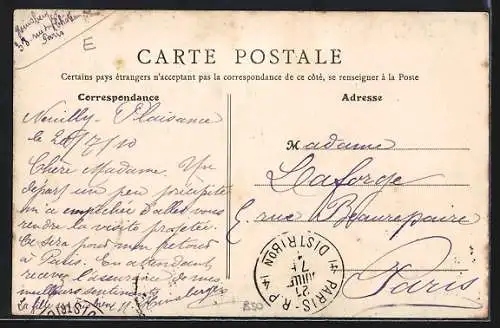 38 rue
Paris
E
CARTE POSTALE
Certains pays étrangers n'acceptant pas la correspondance de ce côté, se renseigner à la Poste
Correspondance
Adresse
Neuilly-Plaisance
le 20/7/10
Chère Madame. Un
départ un peu précipité
m'a empêchée d'aller vous
rendre la visite projetée.
Ce sera pour mon retour
à Paris. En attendant
recevez l'assurance de mes
meilleurs sentiments
Madame
Laforge
8, rue Beaurepaire
Paris
PARIS-R.P
DISTRIBON
B50